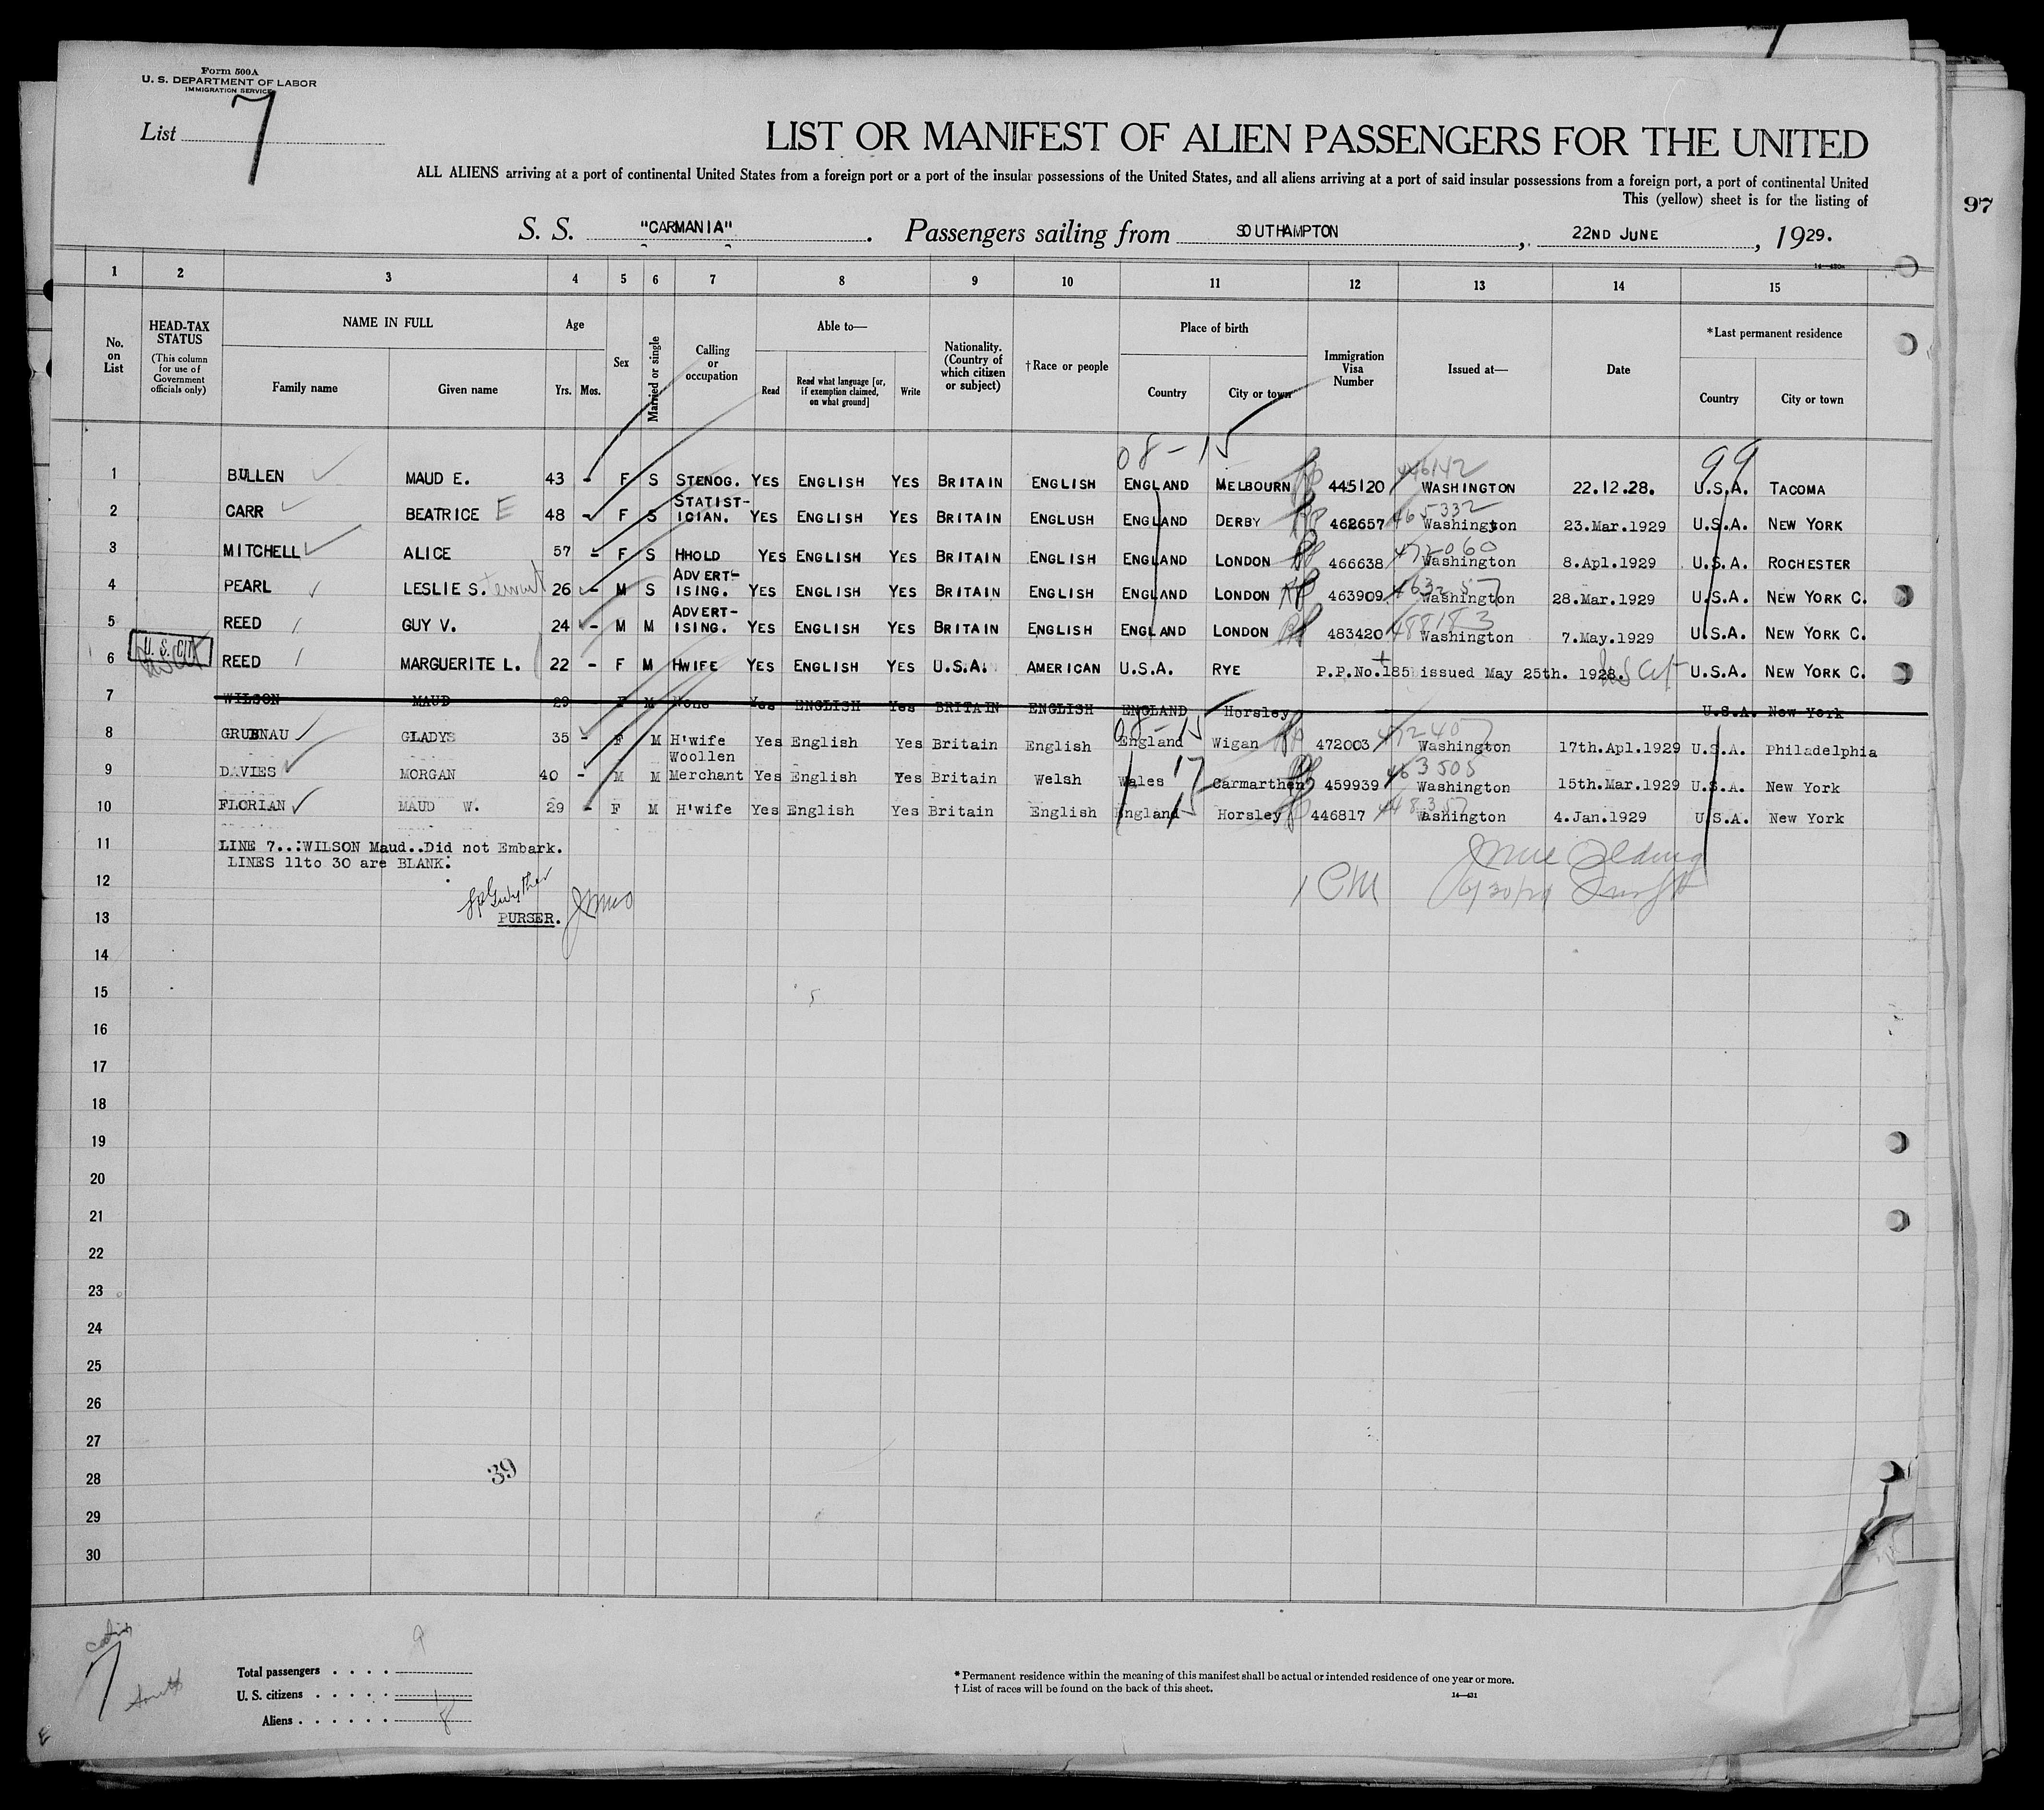 Form 500A
U. S. DEPARTMENT OF LABOR
IMMIGRATION SERVICE
List 7
LIST OR MANIFEST OF ALIEN PASSENGERS FOR THE UNITED
ALL ALIENS arriving at a port of continental United States from a foreign port or a port of the insular possessions of the United States, and all aliens arriving at a port of said insular possessions from a foreign port, a port of continental United
This (yellow) sheet is for the listing of
97
S. S. "CARMANIA". Passengers sailing from SOUTHAMPTON, 22ND JUNE, 1929.
1 2 3 4 5 6 7 8 9 10 11 12 13 14 15
No. on List
HEAD-TAX STATUS
(This column for use of Government officials only)
NAME IN FULL
Family name Given name
Age
Yrs. Mos.
Sex
Married or single
Calling or occupation
Able to—
Read Read what language [or, if exemption claimed, on what ground] Write
Nationality. (Country of which citizen or subject)
†Race or people
Place of birth
Country City or town
Immigration Visa Number
Issued at—
Date
*Last permanent residence
Country City or town
08-15 99
446142
1 BULLEN MAUD E. 43 - F S STENOG. YES ENGLISH YES BRITAIN ENGLISH ENGLAND MELBOURN 445120 WASHINGTON 22.12.28. U.S.A. TACOMA
465332
2 CARR BEATRICE E 48 - F S STATIST-ICIAN. YES ENGLISH YES BRITAIN ENGLUSH ENGLAND DERBY 462657 Washington 23.Mar.1929 U.S.A. NEW YORK
472060
3 MITCHELL ALICE 57 - F S HHOLD YES ENGLISH YES BRITAIN ENGLISH ENGLAND LONDON 466638 Washington 8.Apl.1929 U.S.A. ROCHESTER
463257
4 PEARL LESLIE S. 26 - M S ADVERT-ISING. YES ENGLISH YES BRITAIN ENGLISH ENGLAND LONDON 463909 Washington 28.Mar.1929 U.S.A. NEW YORK C.
488183
5 REED GUY V. 24 - M M ADVERT-ISING. YES ENGLISH YES BRITAIN ENGLISH ENGLAND LONDON 483420 Washington 7.May.1929 U.S.A. NEW YORK C.
U.S. CIT
6 REED MARGUERITE L. 22 - F M HWIFE YES ENGLISH YES U.S.A. AMERICAN U.S.A. RYE P.P.No.185 issued May 25th. 1928. US Cit U.S.A. NEW YORK C.
7 WILSON MAUD 29 F M None Yes ENGLISH Yes BRITAIN ENGLISH ENGLAND Horsley U.S.A. New York
08-15
8 GRUBNAU GLADYS 35 - F M H'wife Yes English Yes Britain English England Wigan 472003 Washington 17th.Apl.1929 U.S.A. Philadelphia
463505
9 DAVIES MORGAN 40 - M M Woollen Merchant Yes English Yes Britain Welsh Wales 17 Carmarthen 459939 Washington 15th.Mar.1929 U.S.A. New York
10 FLORIAN MAUD W. 29 - F M H'wife Yes English Yes Britain English England 15 Horsley 446817 Washington 4.Jan.1929 U.S.A. New York
11 LINE 7..:WILSON Maud..Did not Embark.
LINES 11to 30 are BLANK:
12
13 PURSER.
14
15
16
17
18
19
20
21
22
23
24
25
26
27
28
39
29
30
7
South
Total passengers . . . . 9
U. S. citizens . . . . . 1
Aliens . . . . . . 8
* Permanent residence within the meaning of this manifest shall be actual or intended residence of one year or more.
† List of races will be found on the back of this sheet.
14—431